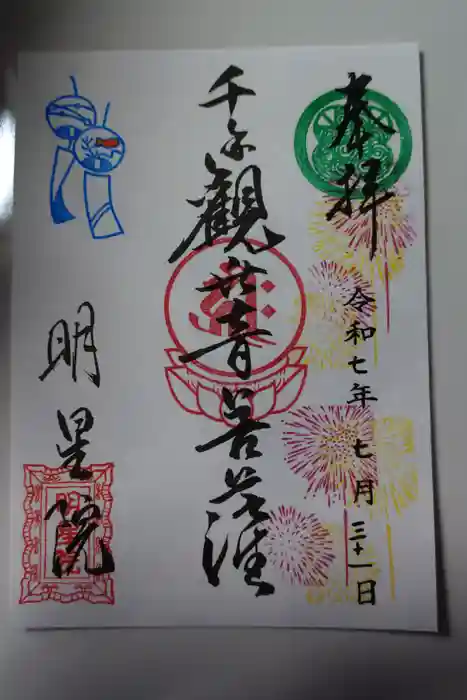 奉拝
令和七年七月三十一日
千手観世音菩薩
明星院